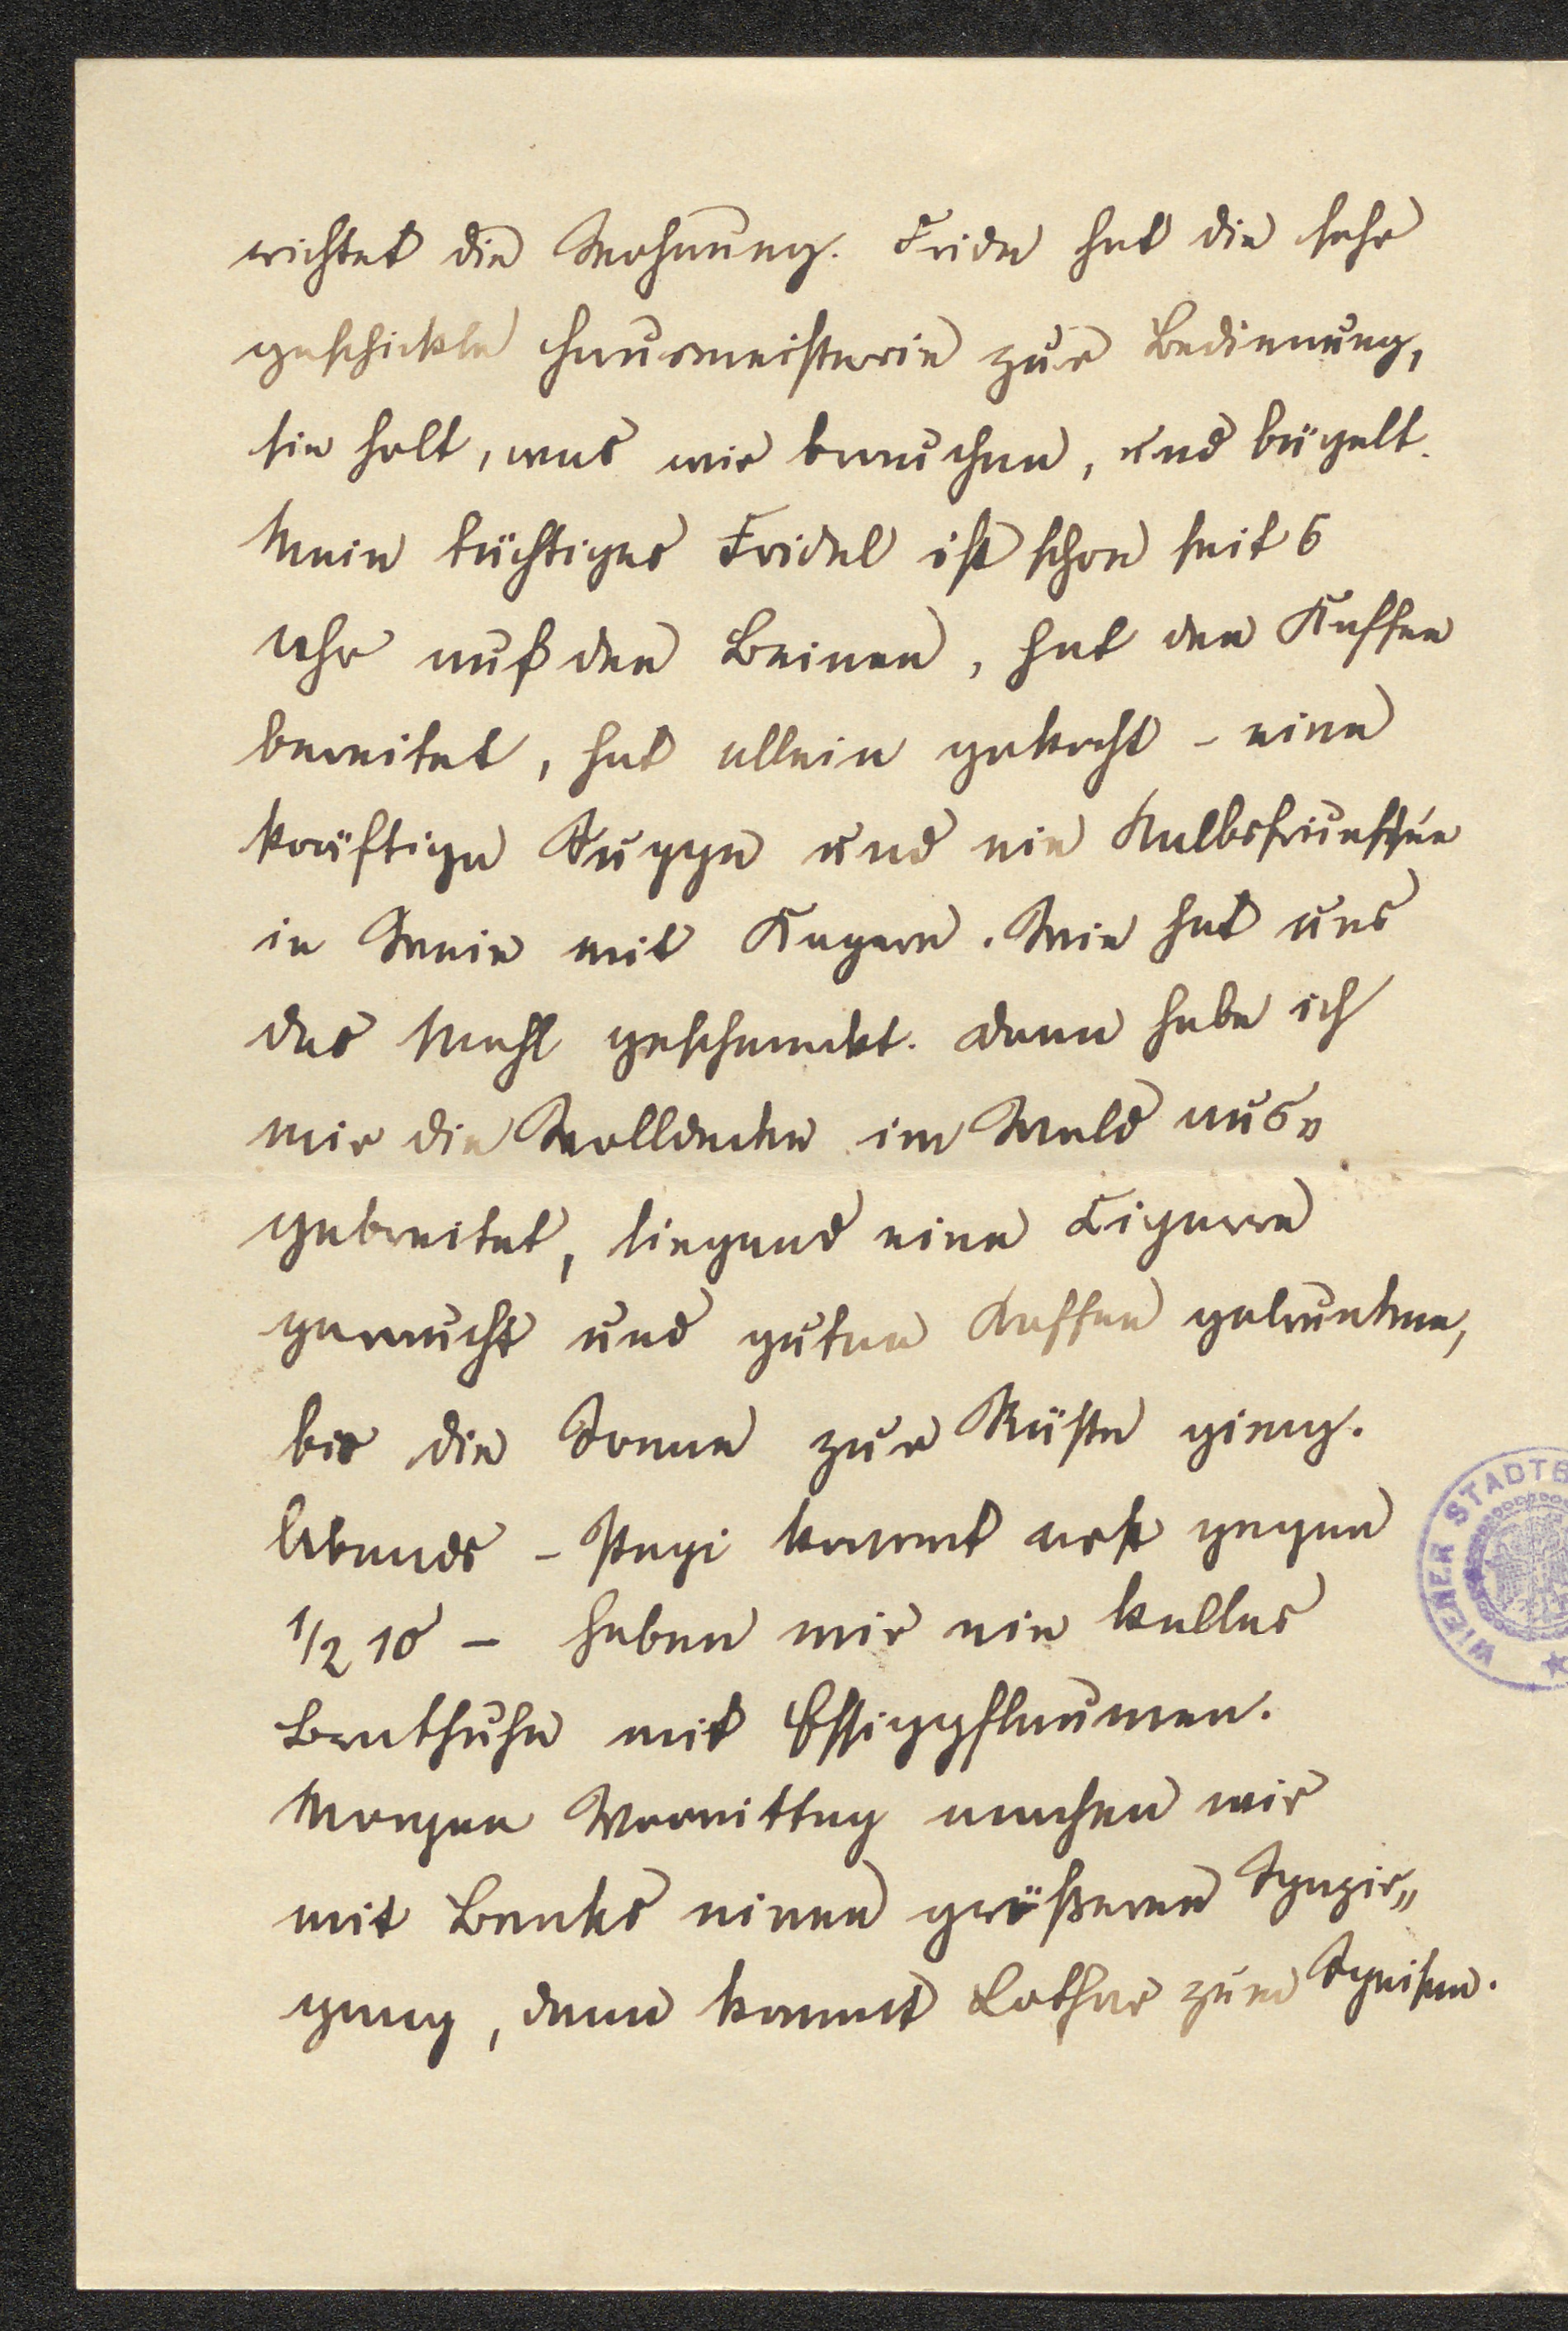 richtet die Wohnung. Fride hat die sehr
geschickte Hausmeisterin zur Bedienung,
sie holt, was wir brauchen, und bügelt.
Mein tüchtiges Fridel ist schon seit 6
Uhr auf den Beinen, hat den Kaffee
bereitet, hat allein gekocht – eine
kräftige Suppe und ein
in Wein mit Kapern. Wie hat uns
das Mahl geschmeckt. Dann habe ich
mir die Wolldecke im Wald aus„
gebreitet, liegend eine Cigarre
geraucht und guten Kaffee getrunken,
bis die Sonne zur Rüste gieng.
Abends – Pepi kommt erst gegen
1/2 10 – haben wir ein kaltes
Brathuhn mit Essigpflaumen.
Morgen Vormittag machen wir
mit Benks einen größeren Spazir„
gang, dann kommt Lothar zum Speisen.
WIENER STADTB